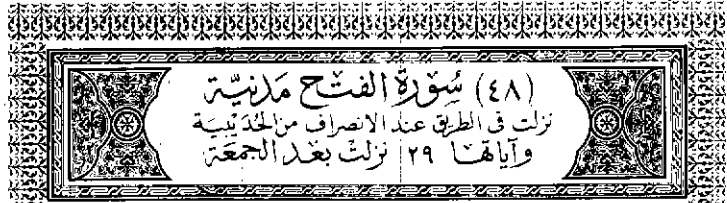 (٤٨) سُورَة الفتح مَدنيَّة
نزلت فى الطريق عند الانصراف من الحُدَيْبِيَة
وآياتها ٢٩ نزلت بعد الجمعَة